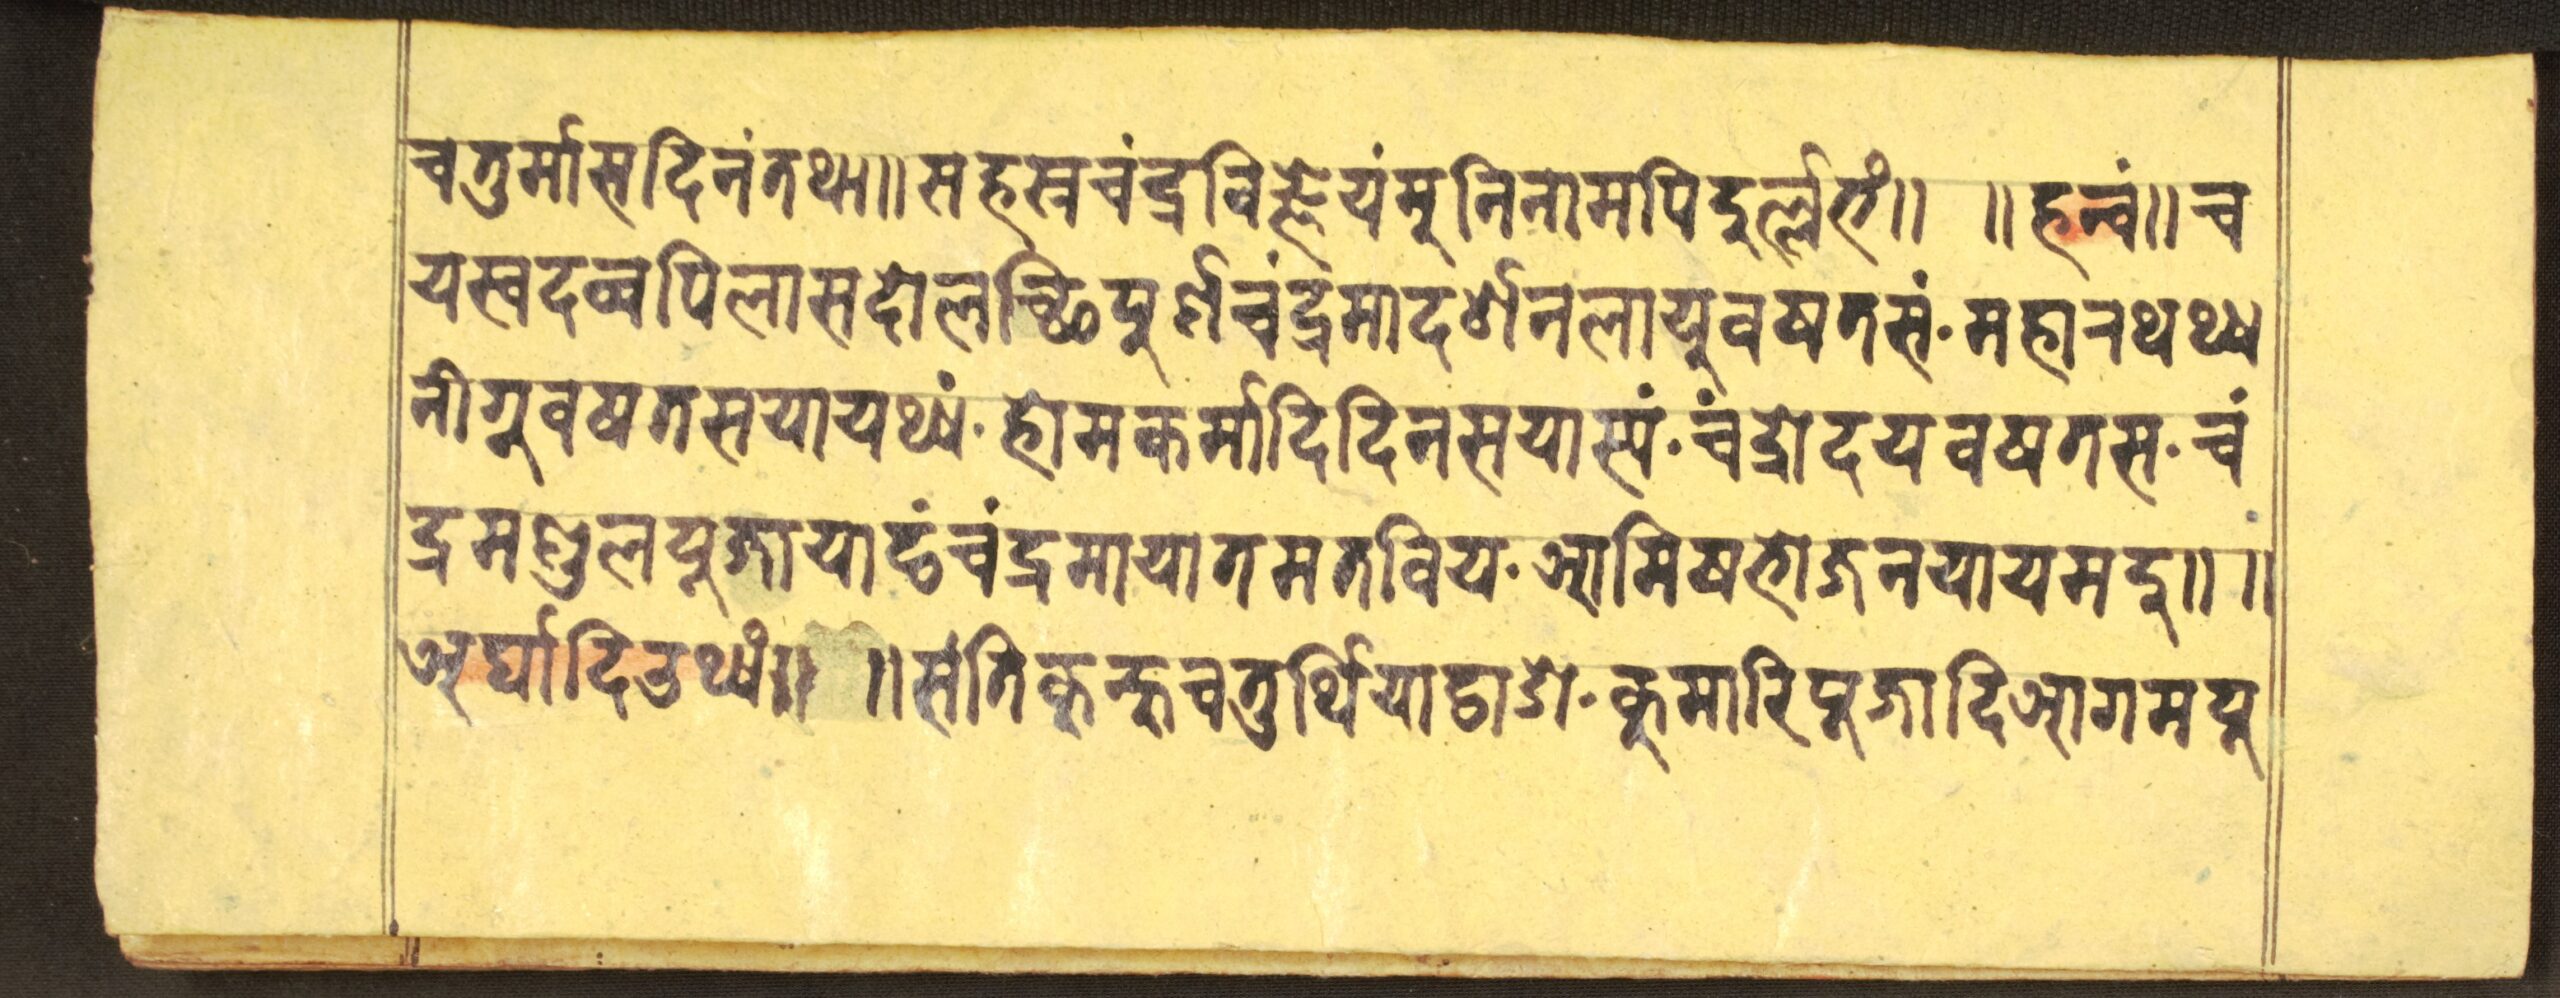 चतुर्मासदिनंतथा॥सहस्रचंद्रविज्ञेयंमुनिनामपिदुर्ल्लभं॥ ॥हन्वं॥च
यस्वदव्वपिलासदोलच्छिपुर्णचंद्रमादर्शनलायुवषतसं·महानथथ्य
नीगूवषतसयायथ्यं·होमकर्मादिदिनसयास्यं·चंद्रोदयवषतस·चं
द्रमण्डलपूजायाङंचंद्रमायातमतविय·आमिषभोजनयायमदु॥ ॥
अर्घादिउथ्यं॥ ॥संतिकुन्हुचतुर्थियाङाओ·कुमारिपूजादिआगमपू